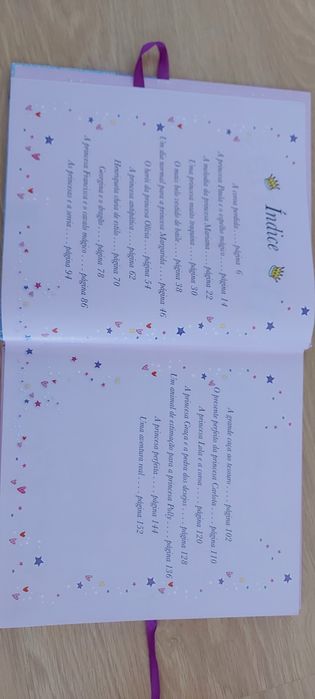 Índice
A coroa perdida . . . . página 6
A princesa Paula e o espelho mágico . . . . página 14
A melodia da princesa Mariana . . . . página 22
Uma princesa muito traquina . . . . página 30
O mais belo vestido de baile . . . . página 38
Um dia normal para a princesa Margarida . . . . página 46
O herói da princesa Olívia . . . . página 54
A princesa antipática . . . . página 62
Henriqueta cheia de estilo . . . . página 70
Georgina e o dragão . . . . página 78
A princesa Francisca e o cavalo mágico . . . . página 86
As princesas e a sereia . . . . página 94
A grande caça ao tesouro . . . . página 102
O presente perfeito da princesa Carlota . . . . página 110
A princesa Lola e a coroa . . . . página 120
A princesa Graça e a pedra dos desejos . . . . página 128
Um animal de estimação para a princesa Polly . . . . página 136
A princesa perfeita . . . . página 144
Uma aventura real . . . . página 152